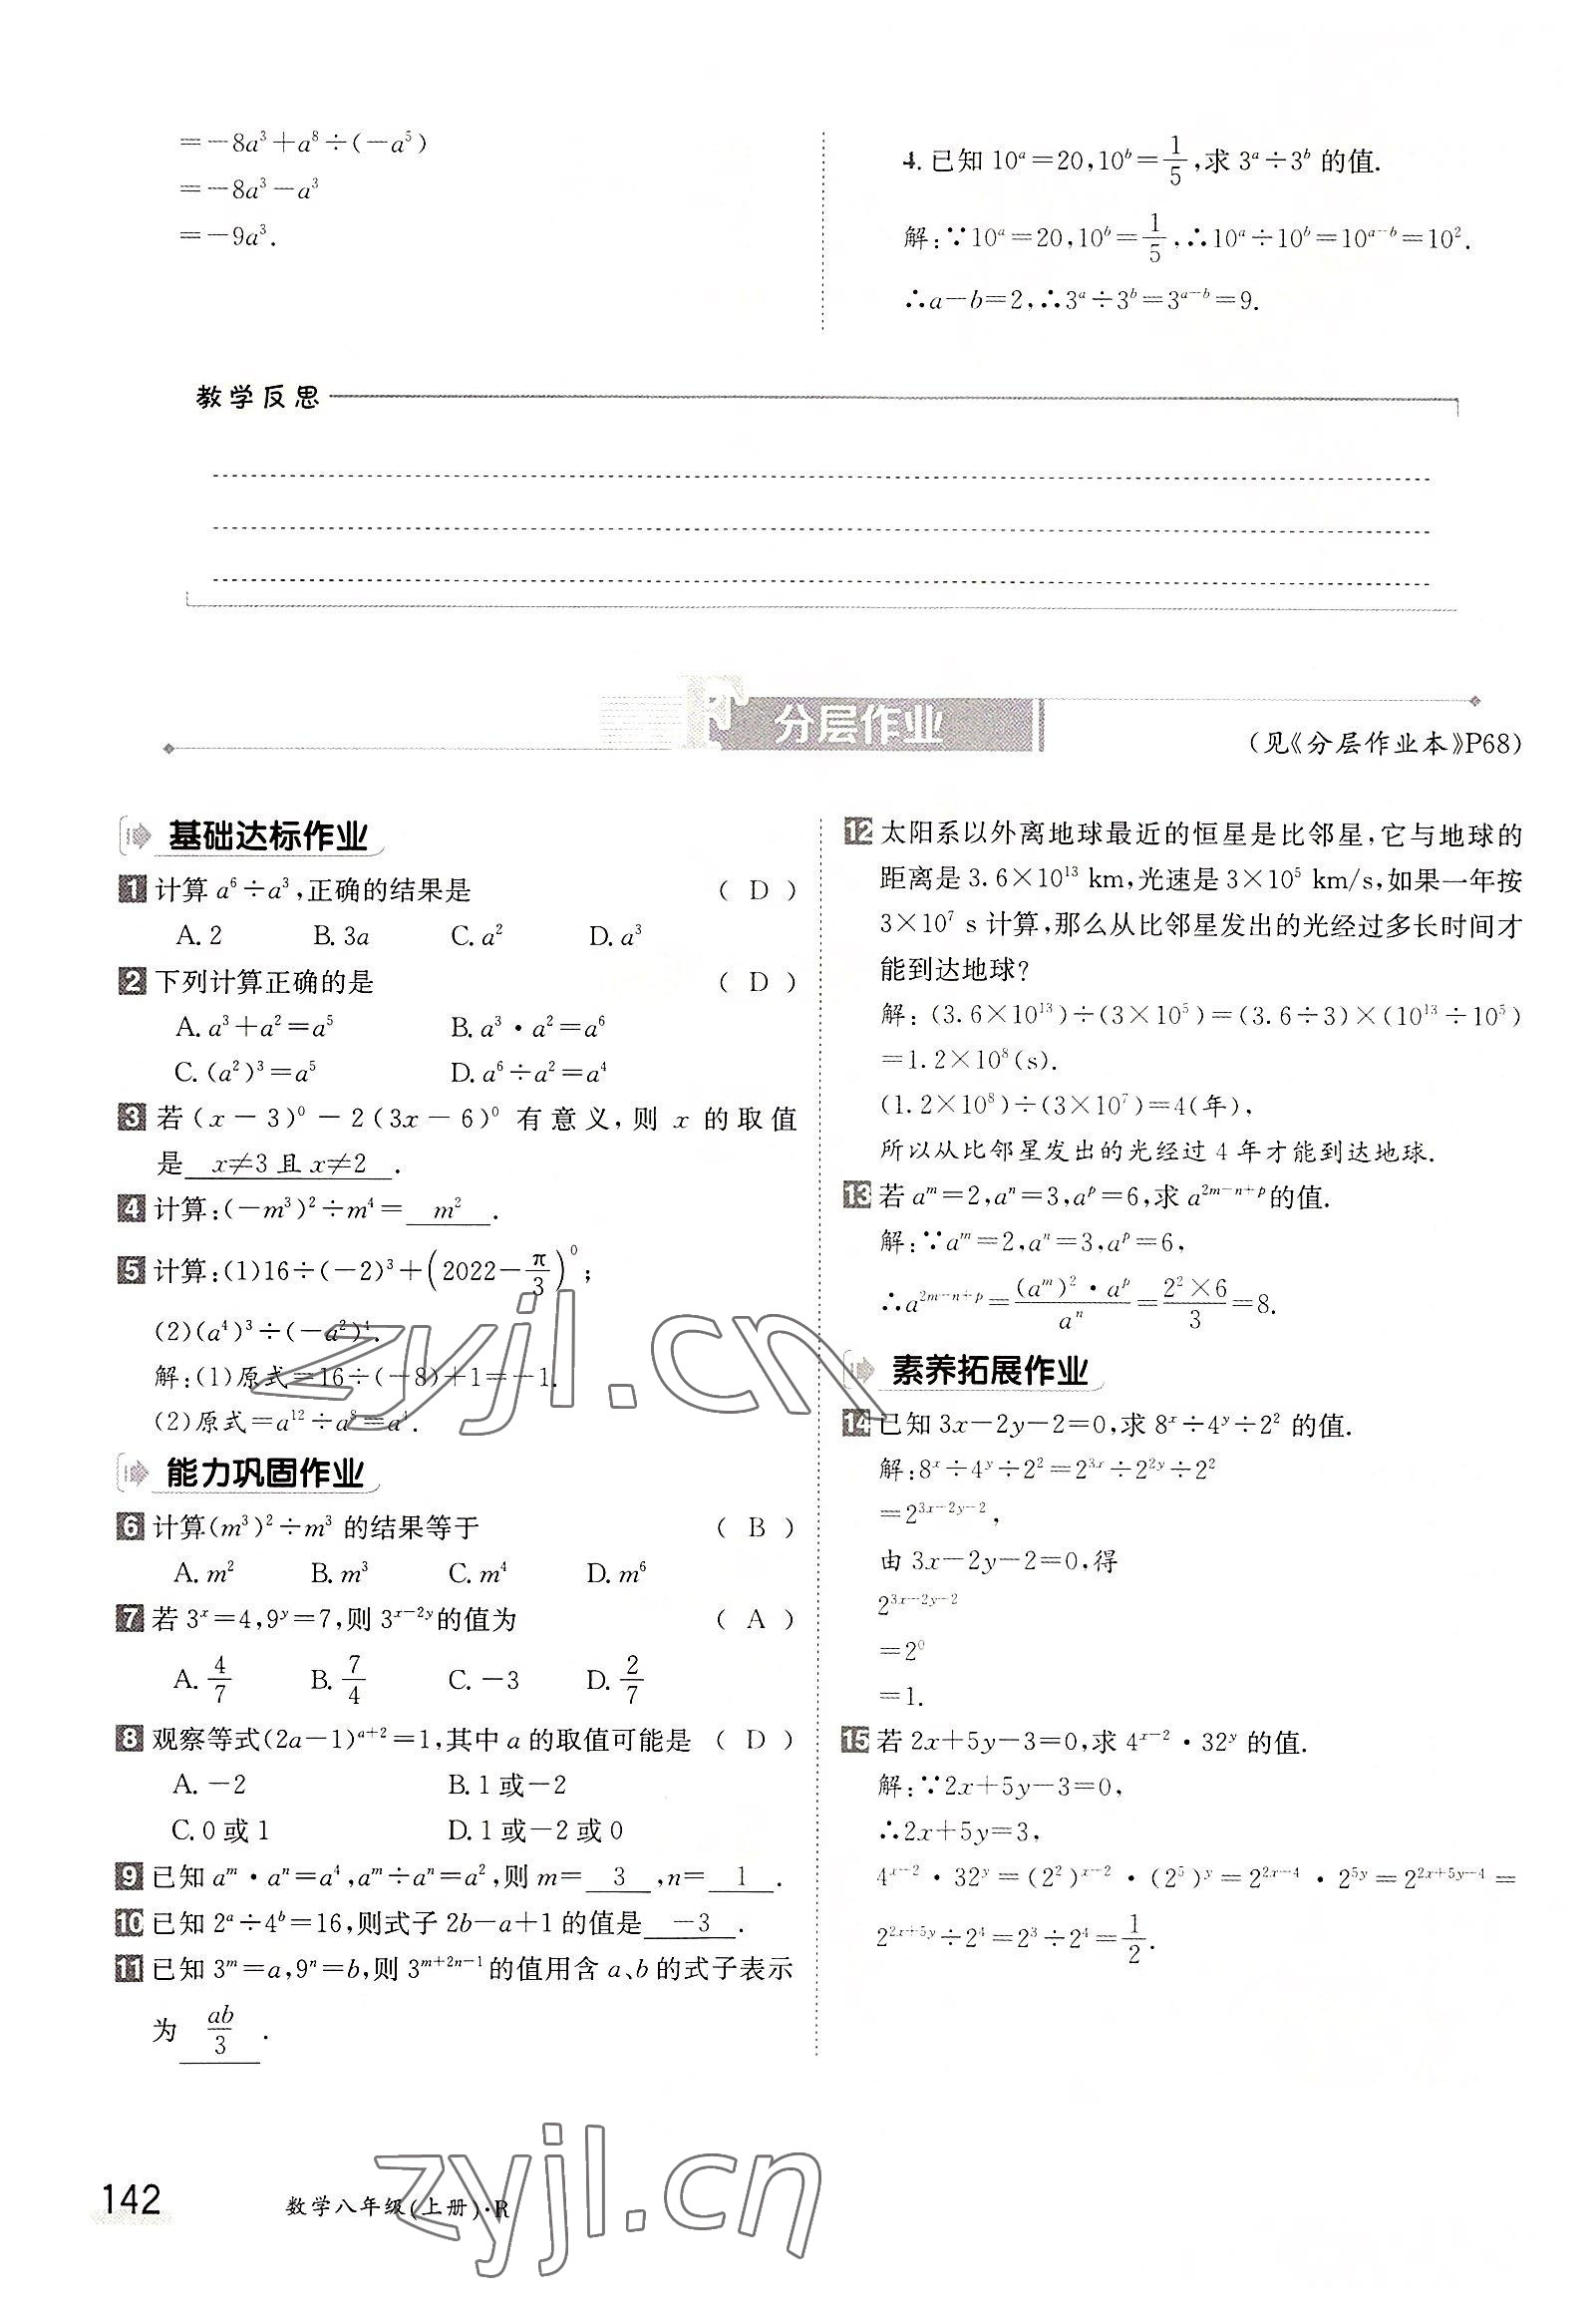 =-8a³+a⁸÷(-a⁵)
=-8a³-a³
=-9a³.
4.已知10ᵃ=20,10ᵇ=1/5,求3ᵃ÷3ᵇ的值.
解:∵10ᵃ=20,10ᵇ=1/5,∴10ᵃ÷10ᵇ=10ᵃ⁻ᵇ=10².
∴a-b=2,∴3ᵃ÷3ᵇ=3ᵃ⁻ᵇ=9.
教学反思
分层作业
(见《分层作业本》P68)
基础达标作业
1 计算a⁶÷a³,正确的结果是 ( D )
A.2 B.3a C.a² D.a³
2 下列计算正确的是 ( D )
A.a³+a²=a⁵ B.a³·a²=a⁶
C.(a²)³=a⁵ D.a⁶÷a²=a⁴
3 若(x-3)⁰-2(3x-6)⁰有意义,则x的取值
是 x≠3且x≠2 .
4 计算:(-m³)²÷m⁴= m² .
5 计算:(1)16÷(-2)³+(2022-π/3)⁰;
(2)(a⁴)³÷(-a²)⁴.
解:(1)原式=16÷(-8)+1=-1.
(2)原式=a¹²÷a⁸=a⁴.
能力巩固作业
6 计算(m³)²÷m³的结果等于 ( B )
A.m² B.m³ C.m⁴ D.m⁶
7 若3ˣ=4,9ʸ=7,则3ˣ⁻²ʸ的值为 ( A )
A.4/7 B.7/4 C.-3 D.2/7
8 观察等式(2a-1)ᵃ⁺²=1,其中a的取值可能是 ( D )
A.-2 B.1或-2
C.0或1 D.1或-2或0
9 已知aᵐ·aⁿ=a⁴,aᵐ÷aⁿ=a²,则m= 3 ,n= 1 .
10 已知2ᵃ÷4ᵇ=16,则式子2b-a+1的值是 -3 .
11 已知3ᵐ=a,9ⁿ=b,则3ᵐ⁺²ⁿ⁻¹的值用含a、b的式子表示
为 ab/3 .
12 太阳系以外离地球最近的恒星是比邻星,它与地球的
距离是3.6×10¹³ km,光速是3×10⁵ km/s,如果一年按
3×10⁷ s计算,那么从比邻星发出的光经过多长时间才
能到达地球?
解:(3.6×10¹³)÷(3×10⁵)=(3.6÷3)×(10¹³÷10⁵)
=1.2×10⁸(s).
(1.2×10⁸)÷(3×10⁷)=4(年),
所以从比邻星发出的光经过4年才能到达地球.
13 若aᵐ=2,aⁿ=3,aᵖ=6,求a²ᵐ⁻ⁿ⁺ᵖ的值.
解:∵aᵐ=2,aⁿ=3,aᵖ=6,
∴a²ᵐ⁻ⁿ⁺ᵖ=(aᵐ)²·aᵖ/aⁿ=2²×6/3=8.
素养拓展作业
14 已知3x-2y-2=0,求8ˣ÷4ʸ÷2²的值.
解:8ˣ÷4ʸ÷2²=2³ˣ÷2²ʸ÷2²
=2³ˣ⁻²ʸ⁻²,
由3x-2y-2=0,得
2³ˣ⁻²ʸ⁻²
=2⁰
=1.
15 若2x+5y-3=0,求4ˣ⁻²·32ʸ的值.
解:∵2x+5y-3=0,
∴2x+5y=3,
4ˣ⁻²·32ʸ=(2²)ˣ⁻²·(2⁵)ʸ=2²ˣ⁻⁴·2⁵ʸ=2²ˣ⁺⁵ʸ⁻⁴=
2²ˣ⁺⁵ʸ÷2⁴=2³÷2⁴=1/2.
zyjl.cn
zyjl.cn
142 数学八年级(上册)·R